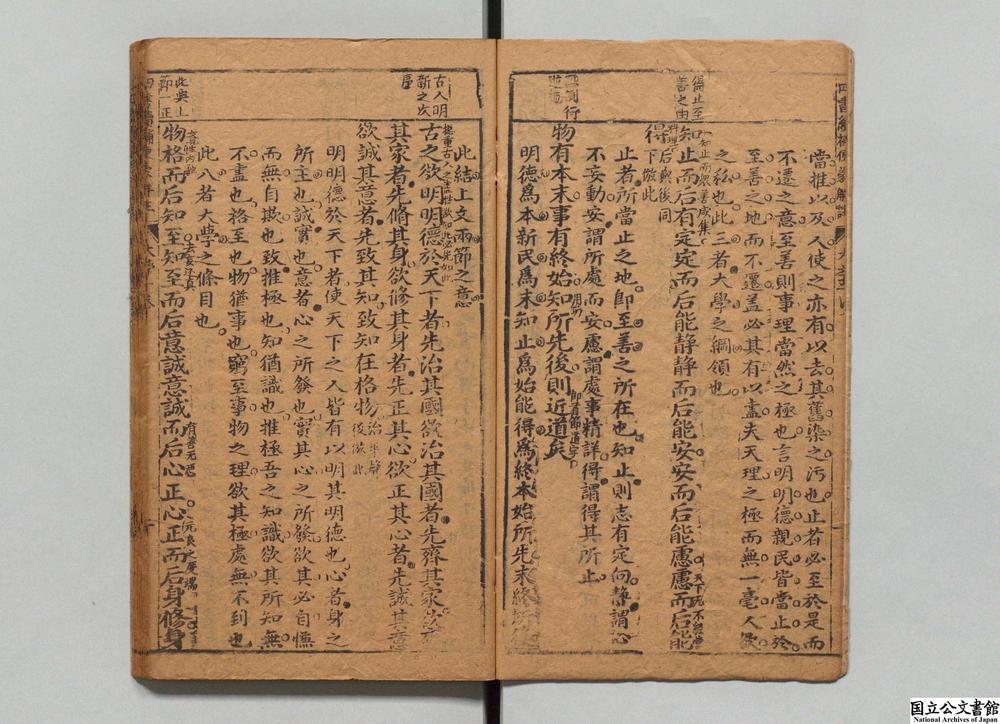 當推以及人使之亦有以去其舊染之污也止者必至於是而
不遷之意至善則事理當然之極也言明明德親民皆當止於
至善之地而不遷盖必其有以盡夫天理之極而無一毫人欲
之私也此三者大學之綱領也
得止至
善之由
知止而后有定定而后能静静而后能安安而后能慮慮而后能
得
后與後同
下倣此
止者所當止之地即至善之所在也知止則志有定向静謂心
不妄動安謂所處而安慮謂處事精詳得謂得其所止
物有本末事有終始知所先後則近道矣
明德爲本新民爲末知止爲始能得爲終本始所先末終
此結上文兩節之意
古人明
新之次
序
古之欲明明德於天下者先治其國欲治其國者先齊其家欲齊
其家者先脩其身欲修其身者先正其心欲正其心者先誠其意
欲誠其意者先致其知致知在格物
治平聲
後倣此
明明德於天下者使天下之人皆有以明其明德也心者身之
所主也誠實也意者心之所發也實其心之所發欲其必自慊
而無自欺也致推極也知猶識也推極吾之知識欲其所知無
不盡也格至也物猶事也窮至事物之理欲其極處無不到也
此八者大學之條目也
此與上
節一正
物格而后知至知至而后意誠意誠而后心正心正而后身修身
国立公文書館
National Archives of Japan